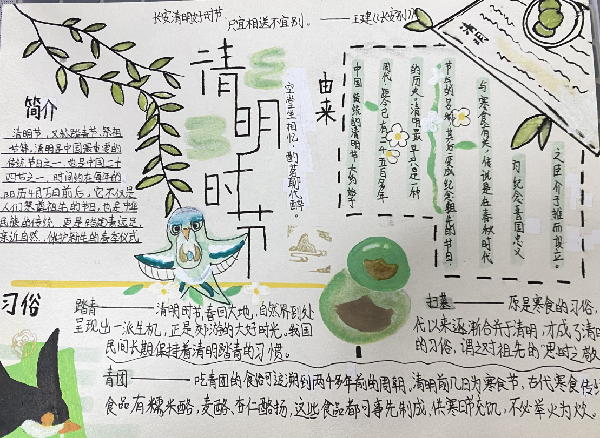 长安清明好时节，只宜相送不宜别。——王建《长安别》
清明
清明时节
空堂坐相忆
酌茗聊代醉。
简介
清明节，又称踏青节、祭祖
节等，清明是中国最重要的
传统节日之一，也是中国二十
四节之一，时间约在每年的
阳历4月5日前后，它不仅是
人们祭奠祖先的节日，也是中华
民族的
亲近自然、
由来
中国传统的清明节大约始于
周代，距今已有二千五百多年
的历史，清明最早只是一种
节气的名称，其
变成纪念祖先的节日，
与寒食有关，传说是在春秋时代
为纪念晋国忠义
之臣介子推而设立。
习俗
踏青——清明时节，春回大地，自然界到处
呈现出一派生机，正是郊游的大好时光，我国
民间长期保持着清明踏青的习惯。
扫墓——原是寒食的习俗，
代以来逐渐合并于清明，才成了清
的习俗，谓之对祖先的"思时之敬
青团——吃青团的食俗可追溯到两千多年前的周朝，清明前几日为寒食节，古代寒食
食品有糯米酪、麦酪、杏仁酪扬，这些食品都可事先制成，供寒日充饥，不必举火为炊。